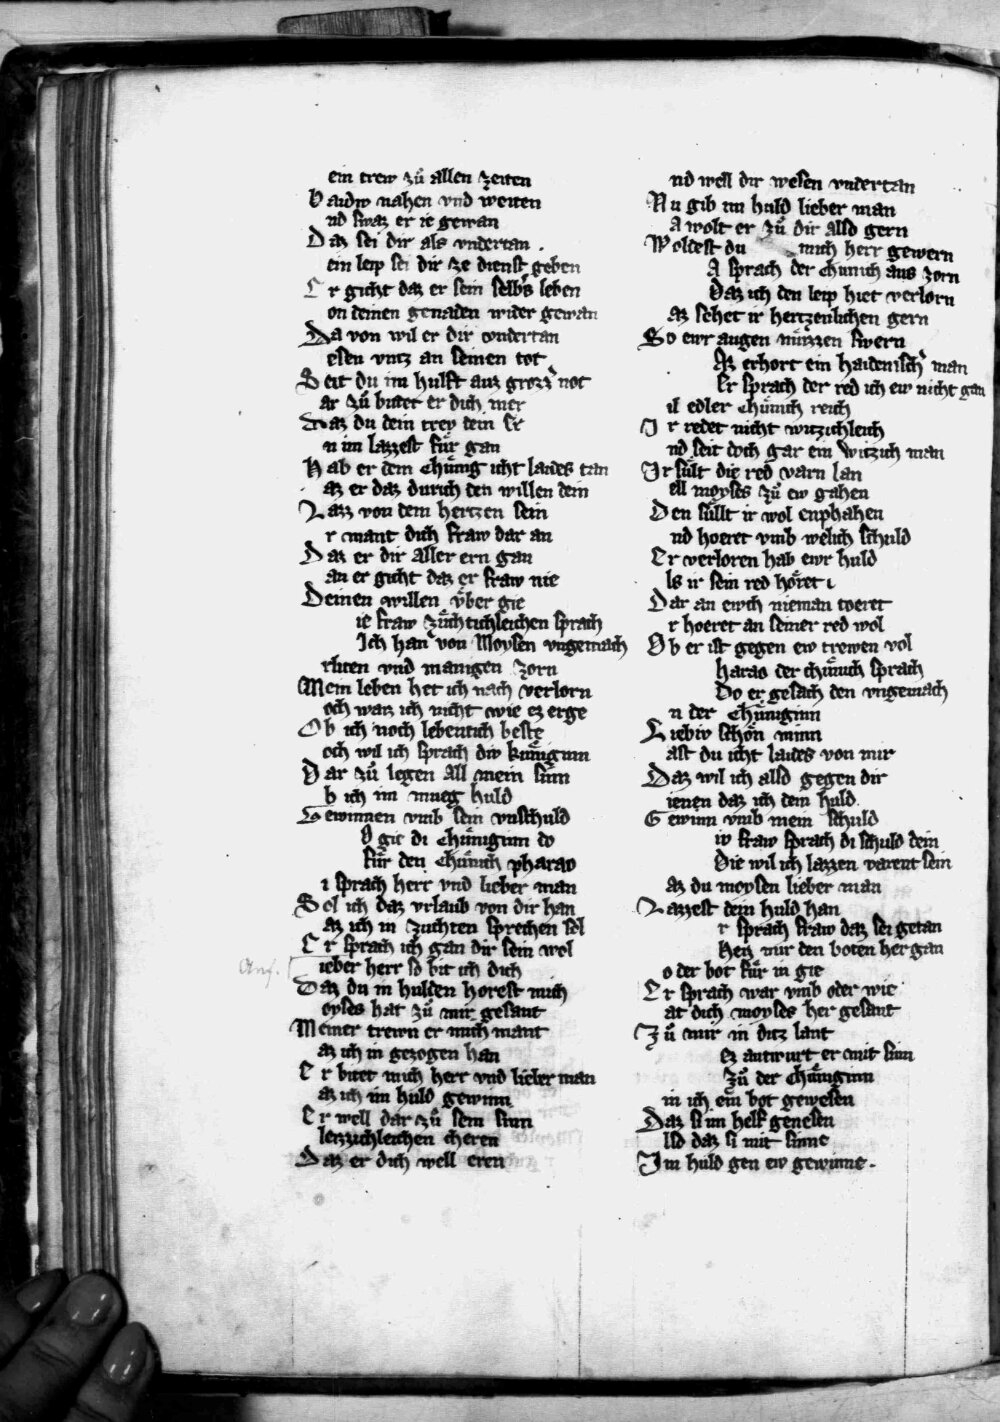 ein trew zů allen zeiten
Baidiv nahen vnd weiten
nd swaz er ie gewan
Daz sei dir als vndertan .
ein leip sei dir ze dienst geben
Er gicht daz er sein selbs leben
on deinen genaden wider gewan
Da von wil er dir vndertan
esen vntz an seinen tot
Seit du im hulft auz grozzer not
ar zů bitet er dich mer
Daz du dein trev dein er
n im lazzest für gan
Hab er dem chünig icht laides tan
az er daz durich den willen dein
Lazz von dem hertzen sein
r mant dich fraw dar an
Daz er dir aller ern gan
an er gicht daz er fraw nie
Deinen willen über gie
ie fraw züchtichleichen sprach
Ich han von Moysen vngemach
rliten vnd manigen zorn
Mein leben het ich nach verlorn
och waiz ich nicht wie ez erge
Ob ich noch lebentich beste
och wil ich sprach div küniginn
Dar zů legen all mein sinn
b ich im mueg huld
Gewinnen vmb sein vnschuld
O gie di chüniginn do
für den chünich pharao
i sprach herr vnd lieber man
Sol ich daz vrlaub von dir han
az ich in zuchten sprechen sol
Er sprach ich gan dir sein wol
ieber herr so bit ich dich
Daz du in hulden horest mich
oyses hat zů mir gesant
Meiner trewn er mich mant
az ich in gezogen han
Er bitet mich herr vnd lieber man
az ich im huld gewinn
Er well dar zů sein sinn
leizzichleichen cheren
Daz er dich well eren
nd well dir wesen vndertan
Nu gib im huld lieber man
a wolt er zů dir also gern
Woldest du mich herr gewern
A sprach der chunich aus zorn
Daz ich den leip hiet verlorn
az sehet ir hertzenlichen gern
So ewr augen müzzen swern
Az erhort ein haidenisch man
Er sprach der red ich ew nicht gan
il edler chünich reich
Ir redet nicht witzichleich
nd seit doch gar ein witzich man
Ir sült die red varn lan
ell moyses zů ew gahen
Den süllt ir wol enphahen
nd hoeret vmb welich schuld
Er verloren hab ewr huld
ls ir sein red höret i
Dar an ewch nieman toeret
r hoeret an seiner red wol
Ob er ist gegen ew trewen vol
harao der chünich sprach
Do er gesach den vngemach
n der chüniginn
Liebiv schön minn
ast du icht laides von mir
Daz wil ich also gegen dir
ienen daz ich dein huld
Gewinn vmb mein schuld
iv fraw sprach di schuld dein
Die wil ich lazzen varent sein
az du moysen lieber man
Lazzest dein huld han
r sprach fraw daz sei getan
Heiz mir den boten her gan
o der bot für in gie
Er sprach war vmb oder wie
at dich moyses her gesant
Zů mir in ditz lant
ez antwurt er mit sinn
Zů der chüniginn
in ich ein bot gewesen
Daz si im helf genesen
lso daz si mit sinne
Im huld gen ew gewinne .